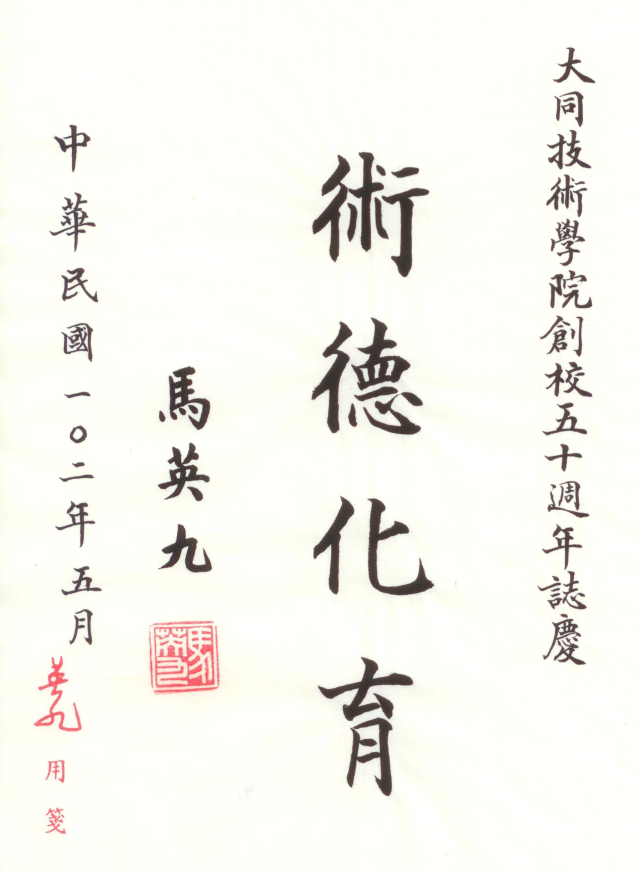 大同技術學院創校五十週年誌慶
術德化育
馬英九
馬英九
中華民國一〇二年五月
英九用箋